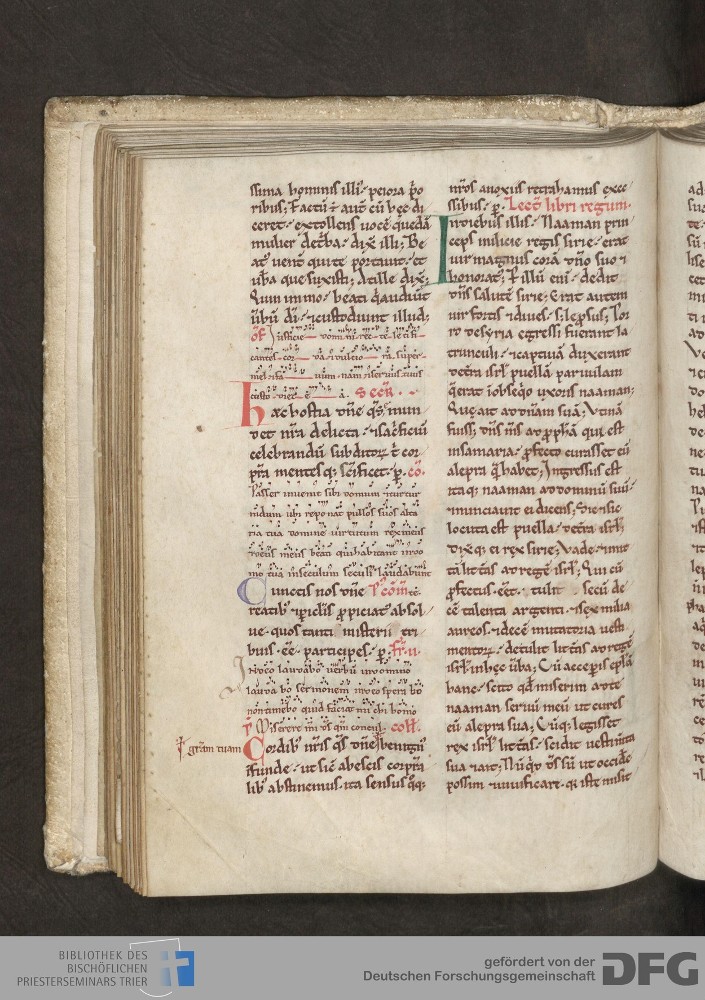 ssima hominis illi᷒ peiora p̄o
ribus; Factū ē aut̄ cū hec di
ceret᷒ extollens uocē quedā
mulier de t̄ba᷒ dix̄ illi; Be
at᷒ uent̄ qui te portauit᷒ et
ub̄a que suxisti; At ille dix̄;
Quin immo᷒ beati q̄ audiūt
uībū dī᷒ ⁊ custodiunt illud;
Of Iusticie domini recte letifi
cantes corda ⁊ dulciora super
mel ⁊ fauum nam ⁊ seruus tuus
custodiet ea. Secr̄.
Hæc hostia dn̄e qs̄ mun
det nr̄a delicta᷒ ⁊ sacrificiū
celebrandū subditorꝝ t̄ cor
pr̄a mentesq; sc̄ificet᷒ p̄. Cō.
Passer inuenit sibi domum ⁊ turtur
nidum ubi reponat pullos suos alta
ria tua domine uirtutum rex meus
⁊ deus meus beati qui habitant in do
mo tua in seculum seculi laudabunt te
Cunctis nos dn̄e p̄ cōm
reatib᷒ ⁊ periclis ꝓpiciat᷒ absol
ue᷒ quos tanti misterii tri
buis ēe participes᷒ p̄. Fr̄. ii.
In deo laudabo uerbū in domino
laudabo sermonem in deo sperabo
non timebo quid faciat m̄ homo
Ps Miserere m̄ ds̄ qm̄ conculc. Coll̄.
℟ gr̄am tuam
Cordib᷒ nr̄is qs̄ dn̄e benign᷒
īfunde᷒ ut sic̄ ab escis corpr̄a
lib᷒ abstinemus᷒ ita sensus q̄q;
nr̄os a noxiis retrahamus exce
ssibus᷒ p̄. Lect̄ libri regum.
In diebus illis᷒ Naaman prin
ceps milicie regis sirie᷒ erat
uir magnus corā dn̄o suo ⁊
honorat᷒; P̄ illū eni᷒ dedit
dn̄s salutē sirie; Erat autem
uir fortis ⁊ diues᷒ s; lep̄sus; Por
ro de syria egressi fuerant la
trunculi᷒ ⁊ captiuā duxerant
de t̄ra isrl̄ puellā paruulam
q̄ erat ī obseq̄o uxoris naaman;
Que ait ad dn̄am suā; Vtinā
fuiss; dn̄s m̄s ad ꝓphā qui est
in samaria᷒ ꝓfecto curasset eū
a lepra q̄ habet; Ingressus est
itaq; naaman ad dominū suū᷒
⁊ nunciauit ei dicens; Sic ⁊ sic
locuta est puella᷒ de t̄ra isrl̄;
Dix̄q; ei rex sirie; Vade᷒ ⁊ mit
tā lit̄as ad regē isrl̄; Qui cū
ꝓfectus eēt᷒ ⁊ tuliss; secū de
cē talenta argenti᷒ ⁊ sex milia
aureos᷒ ⁊ decē mutatoria uesti
mentorꝝ᷒ detulit lit̄as ad regē
isrl̄ in hec ub̄a; Cū acceperis ep̄lā
hanc᷒ scito qd̄ miserim ad te
naaman seruū meū ut cures
eū a lepra sua; Cūq; legisset
rex isrl̄ lit̄as᷒ scidit uestim̄ta
sua ⁊ ait; Nūq̄d ds̄ sū ut occide
possim ⁊ uiuificare᷒ q̄ iste misit
BIBLIOTHEK DES
BISCHÖFLICHEN
PRIESTERSEMINARS TRIER
gefördert von der
Deutschen Forschungsgemeinschaft
DFG